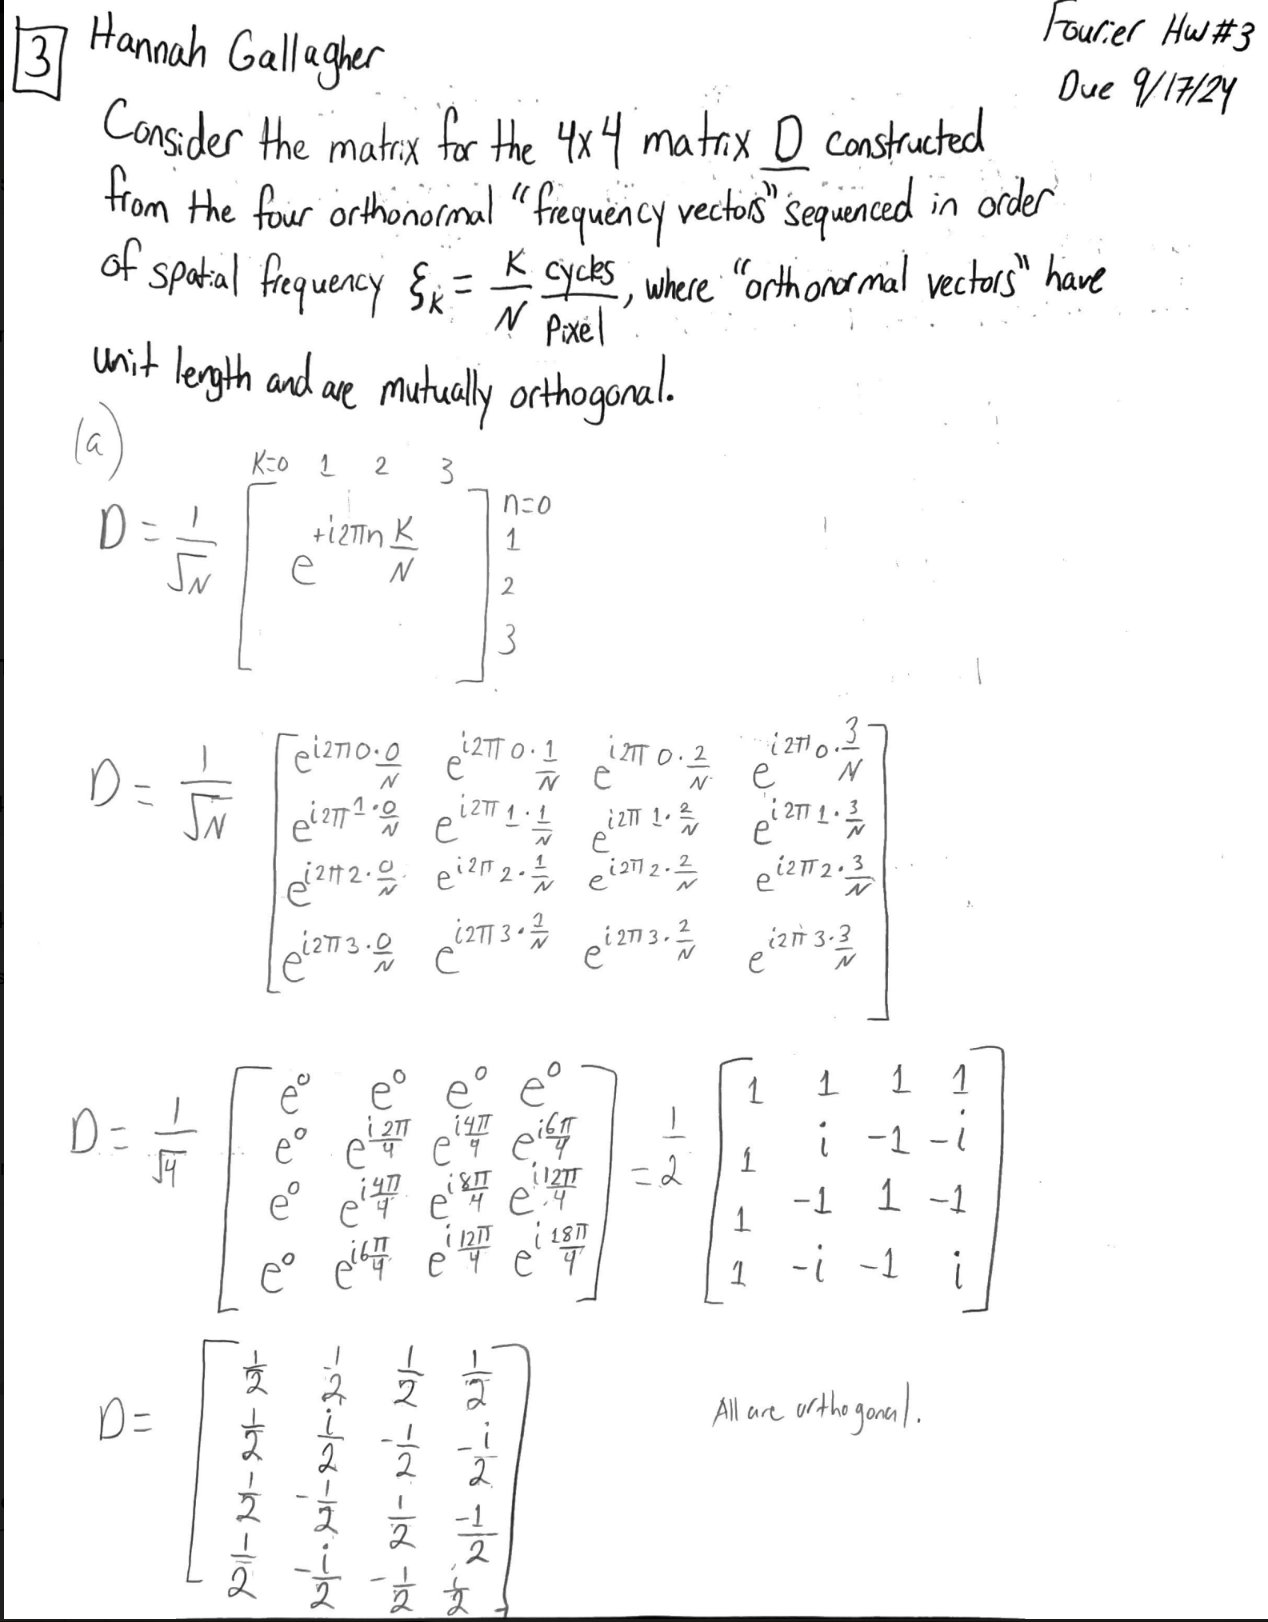 3 Hannah Gallagher
Fourier HW #3
Due 9/17/24
Consider the matrix for the 4x4 matrix D constructed
from the four orthonormal "frequency vectors" sequenced in order
of spatial frequency ξ_k = K/N cycles/Pixel, where "orthonormal vectors" have
unit length and are mutually orthogonal.
(a)
K=0 1 2 3
D = 1/√N [ e^(+i2πn K/N) ] n=0 1 2 3
D = 1/√N [ e^(i2π0·0/N) e^(i2π0·1/N) e^(i2π0·2/N) e^(i2π0·3/N)
e^(i2π1·0/N) e^(i2π1·1/N) e^(i2π1·2/N) e^(i2π1·3/N)
e^(i2π2·0/N) e^(i2π2·1/N) e^(i2π2·2/N) e^(i2π2·3/N)
e^(i2π3·0/N) e^(i2π3·1/N) e^(i2π3·2/N) e^(i2π3·3/N) ]
D = 1/√4 [ e^0 e^0 e^0 e^0 = 1/2 [ 1 1 1 1
e^0 e^(i2π/4) e^(i4π/4) e^(i6π/4) 1 i -1 -i
e^0 e^(i4π/4) e^(i8π/4) e^(i12π/4) 1 -1 1 -1
e^0 e^(i6π/4) e^(i12π/4) e^(i18π/4) ] 1 -i -1 i ]
D = [ 1/2 1/2 1/2 1/2
1/2 i/2 -1/2 -i/2
1/2 -1/2 1/2 -1/2
1/2 -i/2 -1/2 i/2 ]
All are orthogonal.